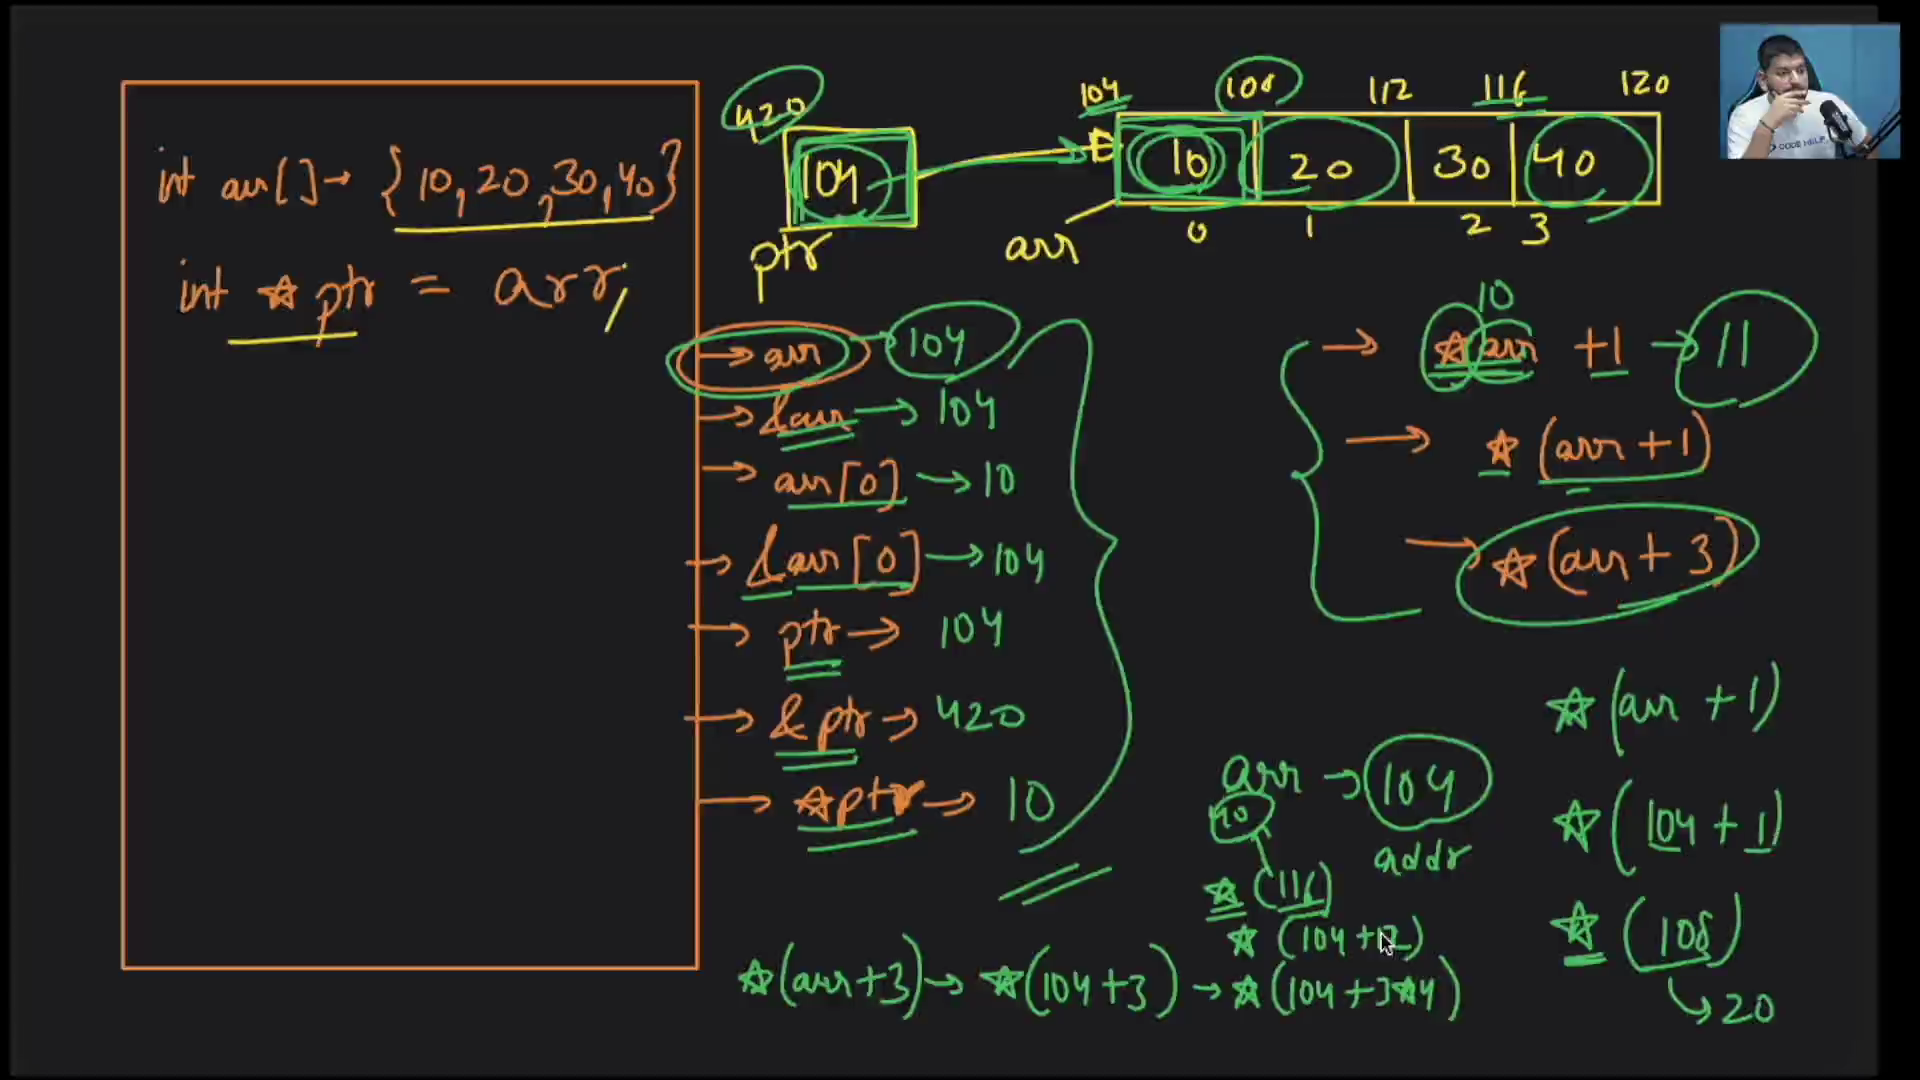 int arr[] → {10,20,30,40}
int *ptr = arr;
420
104
ptr
104 108 112 116 120
10 20 30 40
0 1 2 3
arr
→ arr → 104
→ &arr → 104
→ arr[0] → 10
→ &arr[0] → 104
→ ptr → 104
→ &ptr → 420
→ *ptr → 10
10
→ *arr +1 → 11
→ *(arr+1)
→ *(arr+3)
arr → 104
addr
40
*(116)
*(104+12)
*(arr+3) → *(104+3) → *(104+3*4)
*(arr +1)
*(104+1)
*(108)
↳ 20
CODE HELP